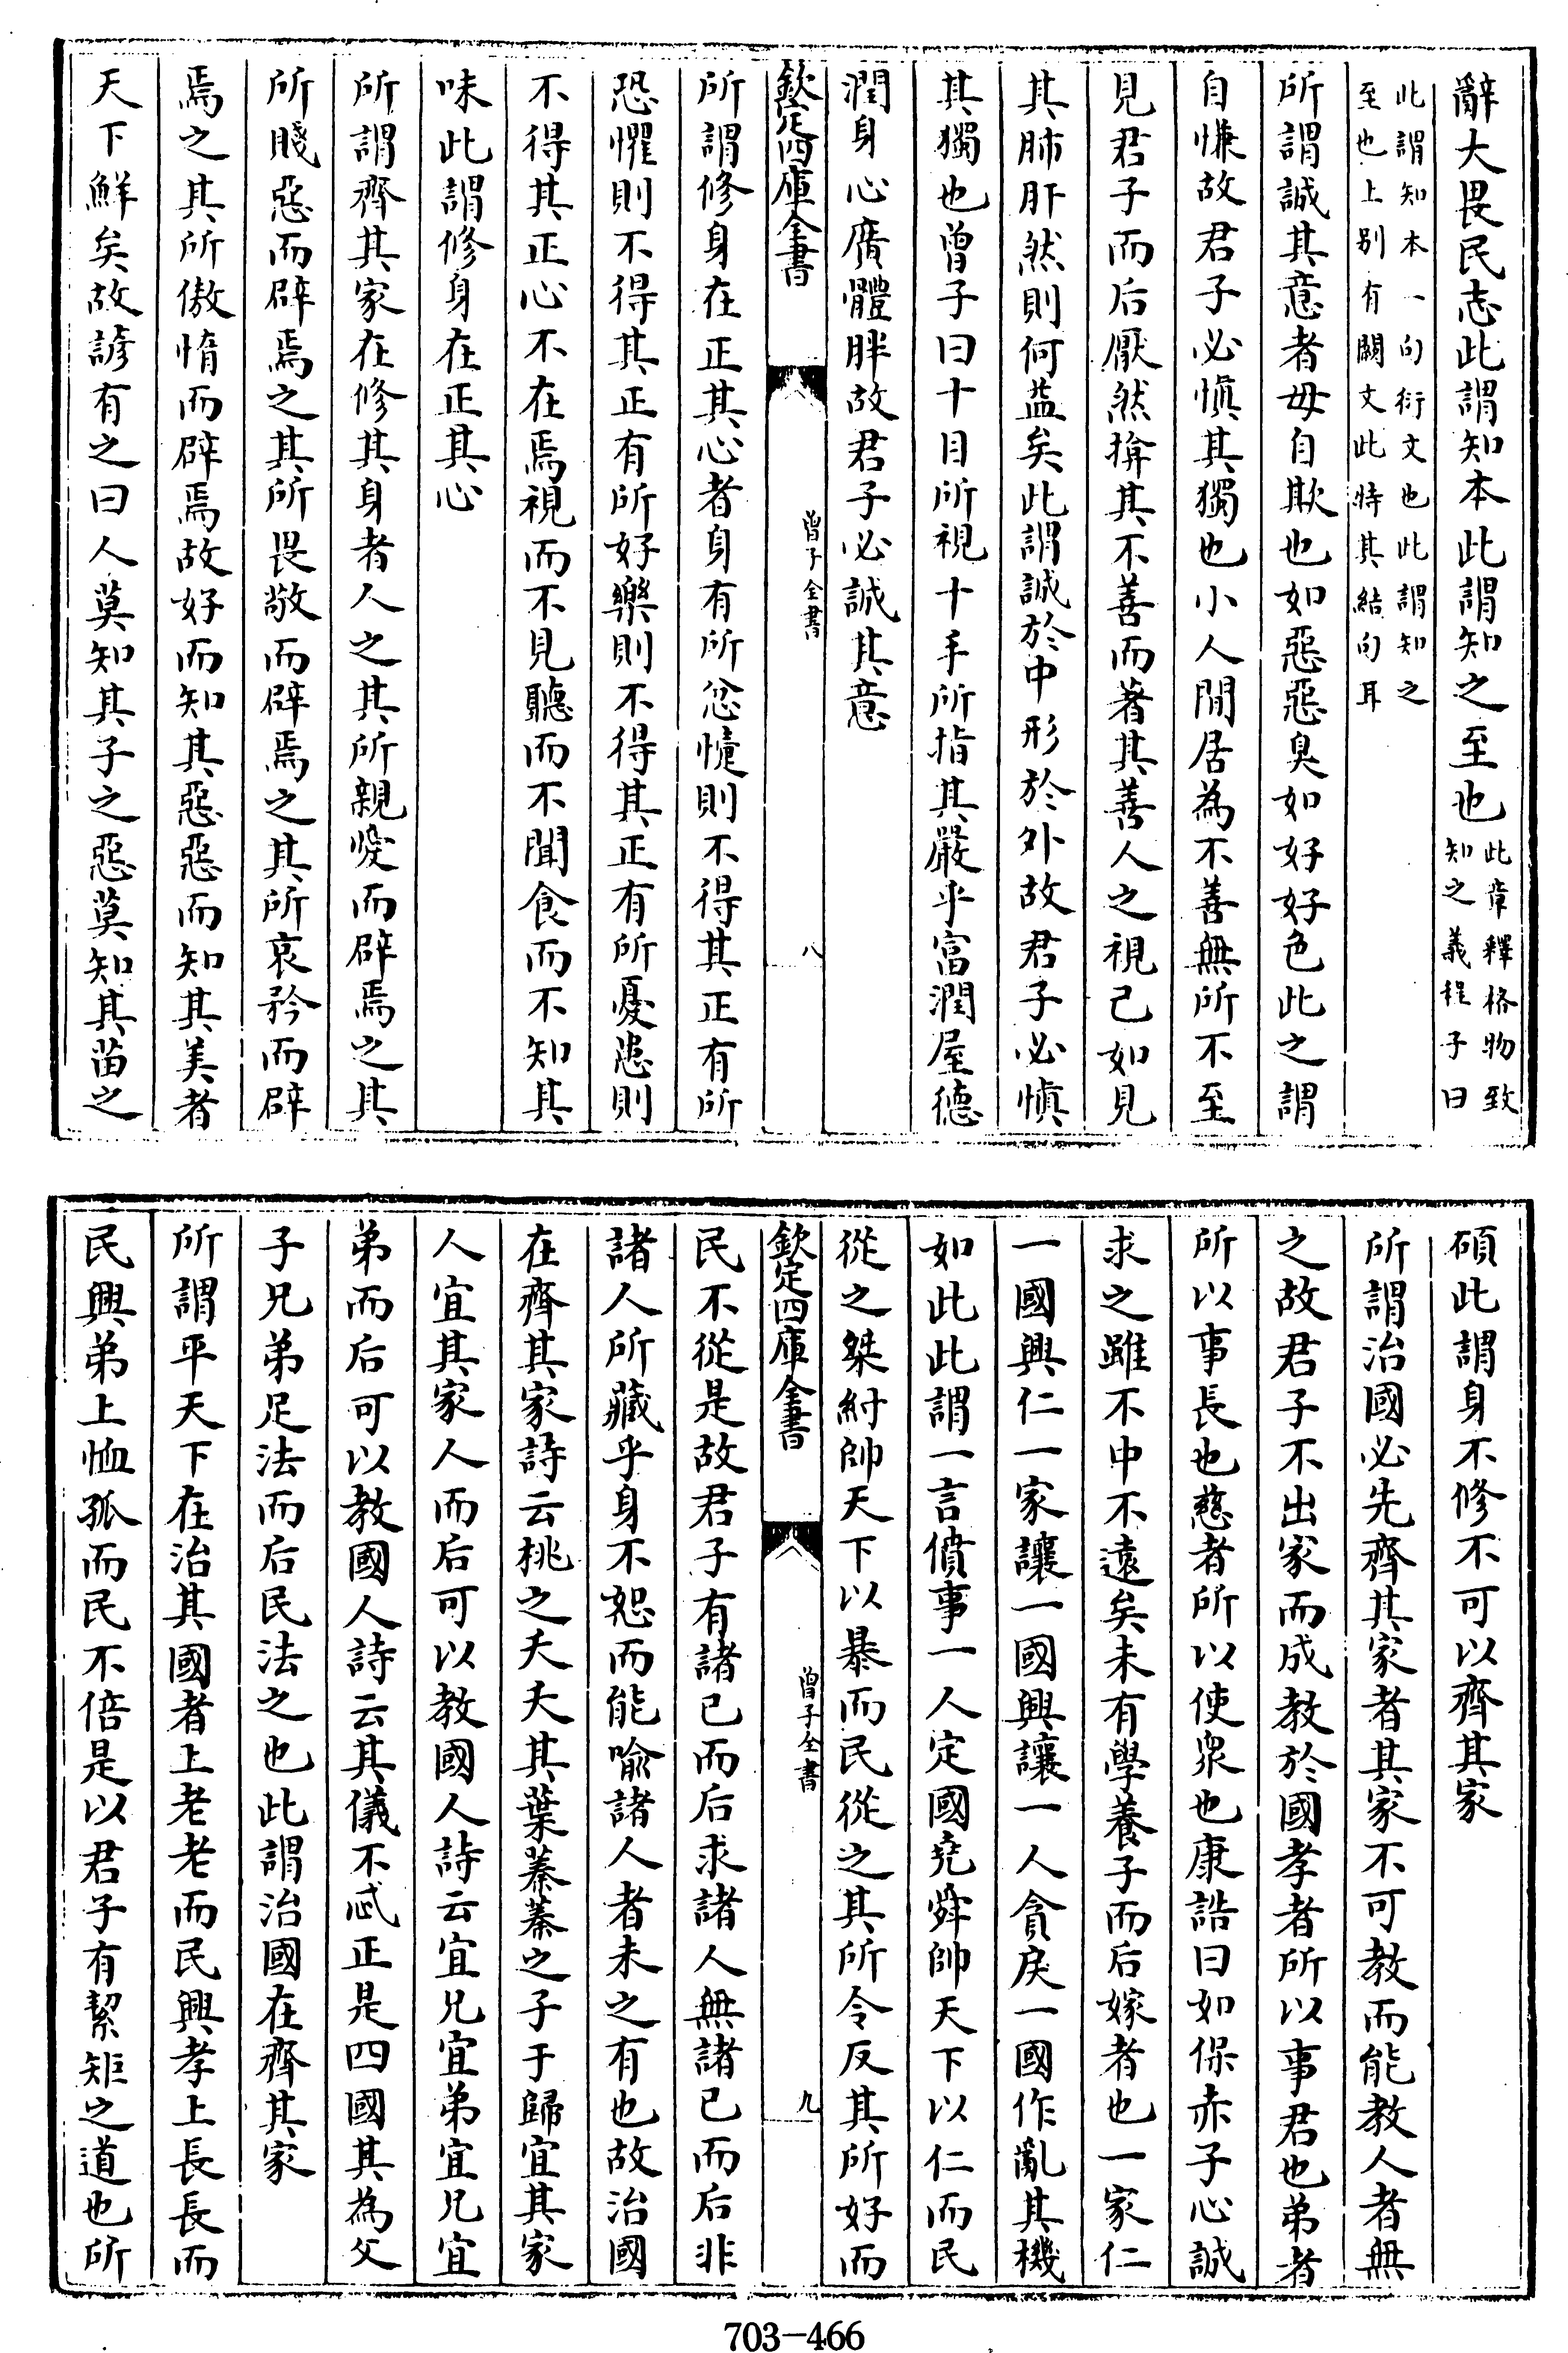 辭大畏民志此謂知本此謂知之至也此章釋格物致
知之義程子曰
此謂知本一句衍文也此謂知之
至也上别有闕文此特其結句耳
所謂誠其意者毋自欺也如惡惡臭如好好色此之謂
自慊故君子必慎其獨也小人閒居為不善無所不至
見君子而后厭然揜其不善而著其善人之視己如見
其肺肝然則何益矣此謂誠於中形於外故君子必慎
其獨也曾子曰十目所視十手所指其嚴乎富潤屋德
潤身心廣體胖故君子必誠其意
欽定四庫全書
曾子全書
八
所謂修身在正其心者身有所忿懥則不得其正有所
恐懼則不得其正有所好樂則不得其正有所憂患則
不得其正心不在焉視而不見聽而不聞食而不知其
味此謂修身在正其心
所謂齊其家在修其身者人之其所親愛而辟焉之其
所賤惡而辟焉之其所畏敬而辟焉之其所哀矜而辟
焉之其所傲惰而辟焉故好而知其惡惡而知其美者
天下鮮矣故諺有之曰人莫知其子之惡莫知其苗之
碩此謂身不修不可以齊其家
所謂治國必先齊其家者其家不可教而能教人者無
之故君子不出家而成教於國孝者所以事君也弟者
所以事長也慈者所以使衆也康誥曰如保赤子心誠
求之雖不中不遠矣未有學養子而后嫁者也一家仁
一國興仁一家讓一國興讓一人貪戾一國作亂其機
如此此謂一言僨事一人定國堯舜帥天下以仁而民
從之桀紂帥天下以暴而民從之其所令反其所好而
欽定四庫全書
曾子全書
九
民不從是故君子有諸己而后求諸人無諸己而后非
諸人所藏乎身不恕而能喻諸人者未之有也故治國
在齊其家詩云桃之夭夭其葉蓁蓁之子于歸宜其家
人宜其家人而后可以教國人詩云宜兄宜弟宜兄宜
弟而后可以教國人詩云其儀不忒正是四國其為父
子兄弟足法而后民法之也此謂治國在齊其家
所謂平天下在治其國者上老老而民興孝上長長而
民興弟上恤孤而民不倍是以君子有絜矩之道也所
703-466